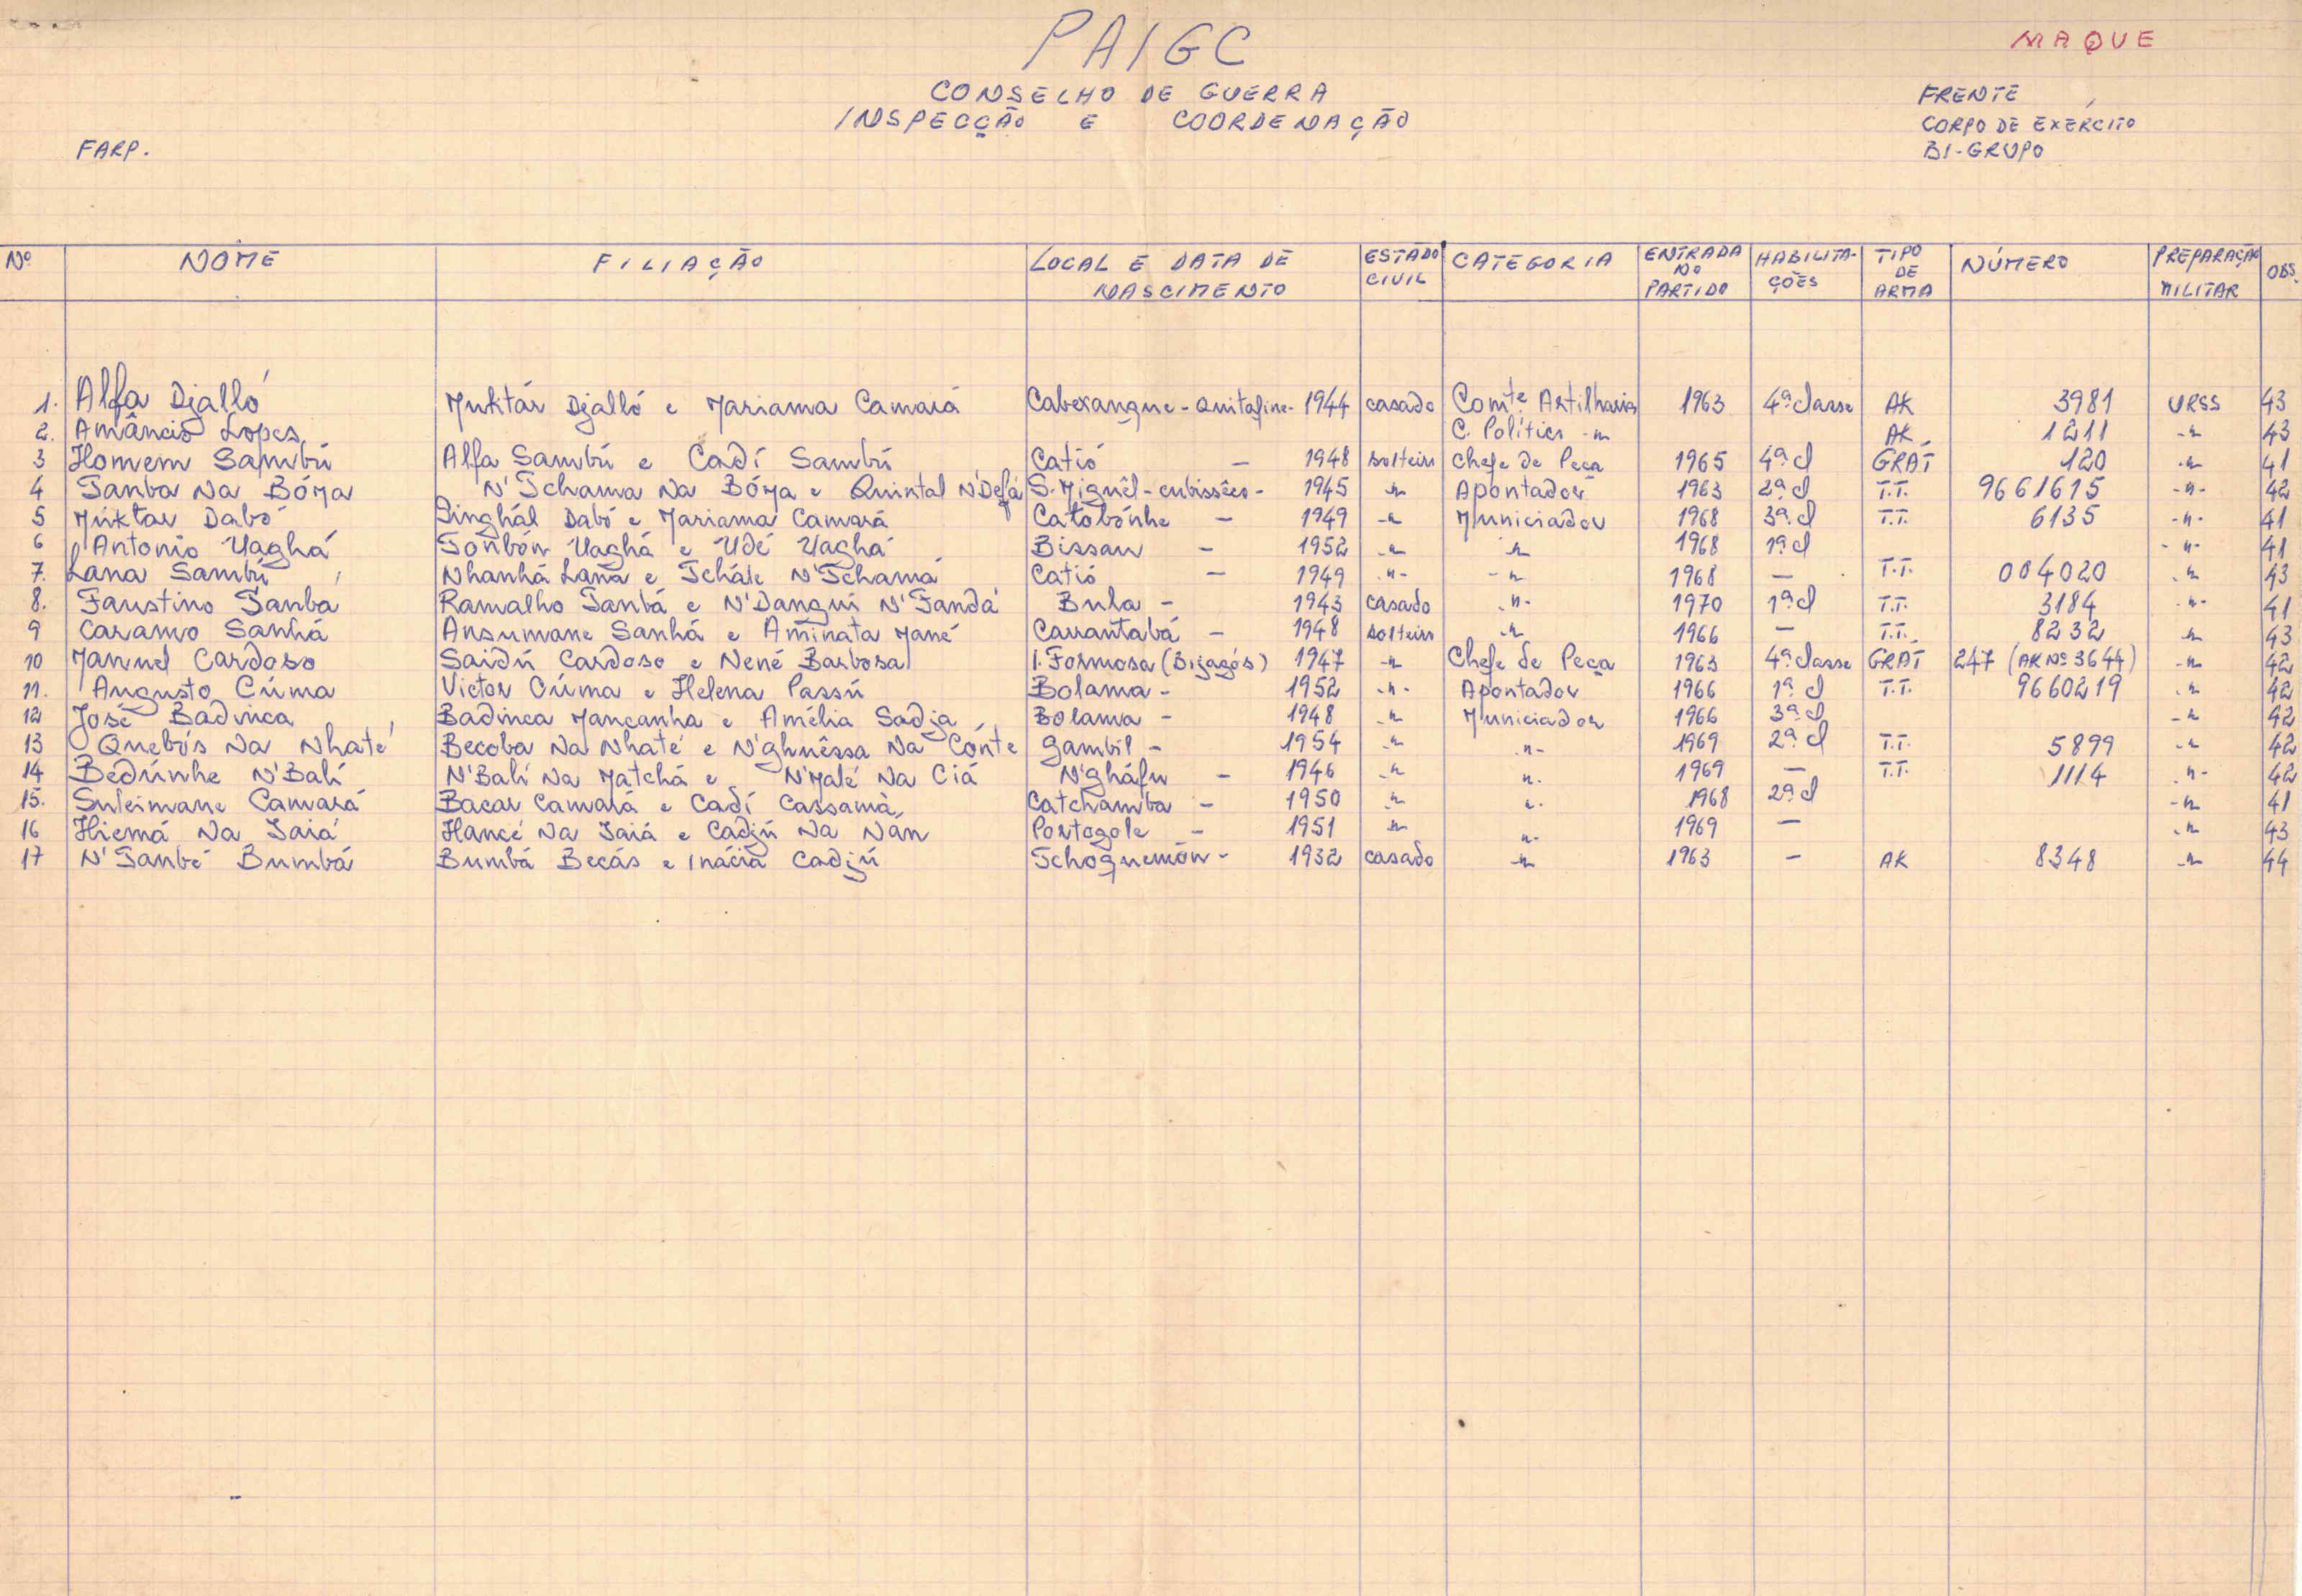 PAIGC
MAQUE
CONSELHO DE GUERRA
INSPECÇÃO E COORDENAÇÃO
FARP.
FRENTE
CORPO DE EXÉRCITO
BI-GRUPO
Nº NOME FILIAÇÃO LOCAL E DATA DE NASCIMENTO ESTADO CIVIL CATEGORIA ENTRADA NO PARTIDO HABILITAÇÕES TIPO DE ARMA NÚMERO PREPARAÇÃO MILITAR OBS.
1. Alfa Djalló Muktár Djalló e Mariama Camará Cabexangue - Quitafine - 1944 casado Comte Artilharia 1963 4ª classe AK 3981 URSS 43
2. Amâncio Lopes C. Politico -"- AK 1211 -"- 43
3 Homem Sambú Alfa Sambú e Cadí Sambú Catió - 1948 solteiro Chefe de Peça 1965 4ª cl GRAT 120 -"- 41
4 Tanba Na Bóma N'Tchama Na Bóma e Quintal N'Defa S. Miguêl - cubissêco - 1945 -"- Apontador 1963 2ª cl T.T. 9661615 -"- 42
5 Múktar Dabó Singhál Dabó e Mariama Camará Catobónhe - 1949 -"- Municiador 1968 3ª cl T.T. 6135 -"- 41
6 Antonio Uaghá Tonbón Uaghá e Udé Uaghá Bissau - 1952 -"- -"- 1968 1ª cl -"- 41
7. Lana Sambú Nhanhá Lana e Tchále N'Tchamá Catió - 1949 -"- -"- 1968 - T.T. 004020 -"- 43
8. Faustino Tanbá Ramalho Tanbá e N'Danguí N'Fandá Bula - 1943 casado -"- 1970 1ª cl T.T. 3184 -"- 41
9 Caramo Sanhá Ansumane Sanhá e Aminata Mané Carantabá - 1948 solteiro -"- 1966 - T.T. 8232 -"- 43
10 Manuel Cardoso Saidú Cardoso e Nené Barbosa I. Formosa (Bijagós) 1947 -"- Chefe de Peça 1963 4ª classe GRAT 247 (AK Nº 3644) -"- 42
11. Augusto Cúma Victor Cúma e Helena Passú Bolama - 1952 -"- Apontador 1966 1ª cl T.T. 9660219 -"- 42
12 José Badinca Badinca Mancanha e Amélia Sadja Bolama - 1948 -"- Municiador 1966 3ª cl -"- 42
13 Quebós Na Nhaté Becoba Na Nhaté e N'ghuêssa Na Cónte Gambil - 1954 -"- -"- 1969 2ª cl T.T. 5899 -"- 42
14 Bedúnhe N'Balí N'Balí Na Matchá e N'Malé Na Ciá N'gháfu - 1946 -"- -"- 1969 - T.T. 1114 -"- 42
15. Suleimane Camará Bacar Camará e Cadí Cassamà Catchamba - 1950 -"- -"- 1968 2ª cl -"- 41
16 Hiemá Na Iaiá Hancé Na Iaiá e Cadjú Na Nán Portogole - 1951 -"- -"- 1969 - -"- 43
17 N'Tanbé Bumbá Bumbá Becás e Inácia Cadjú Tchoguemón - 1932 casado -"- 1963 - AK 8348 -"- 44